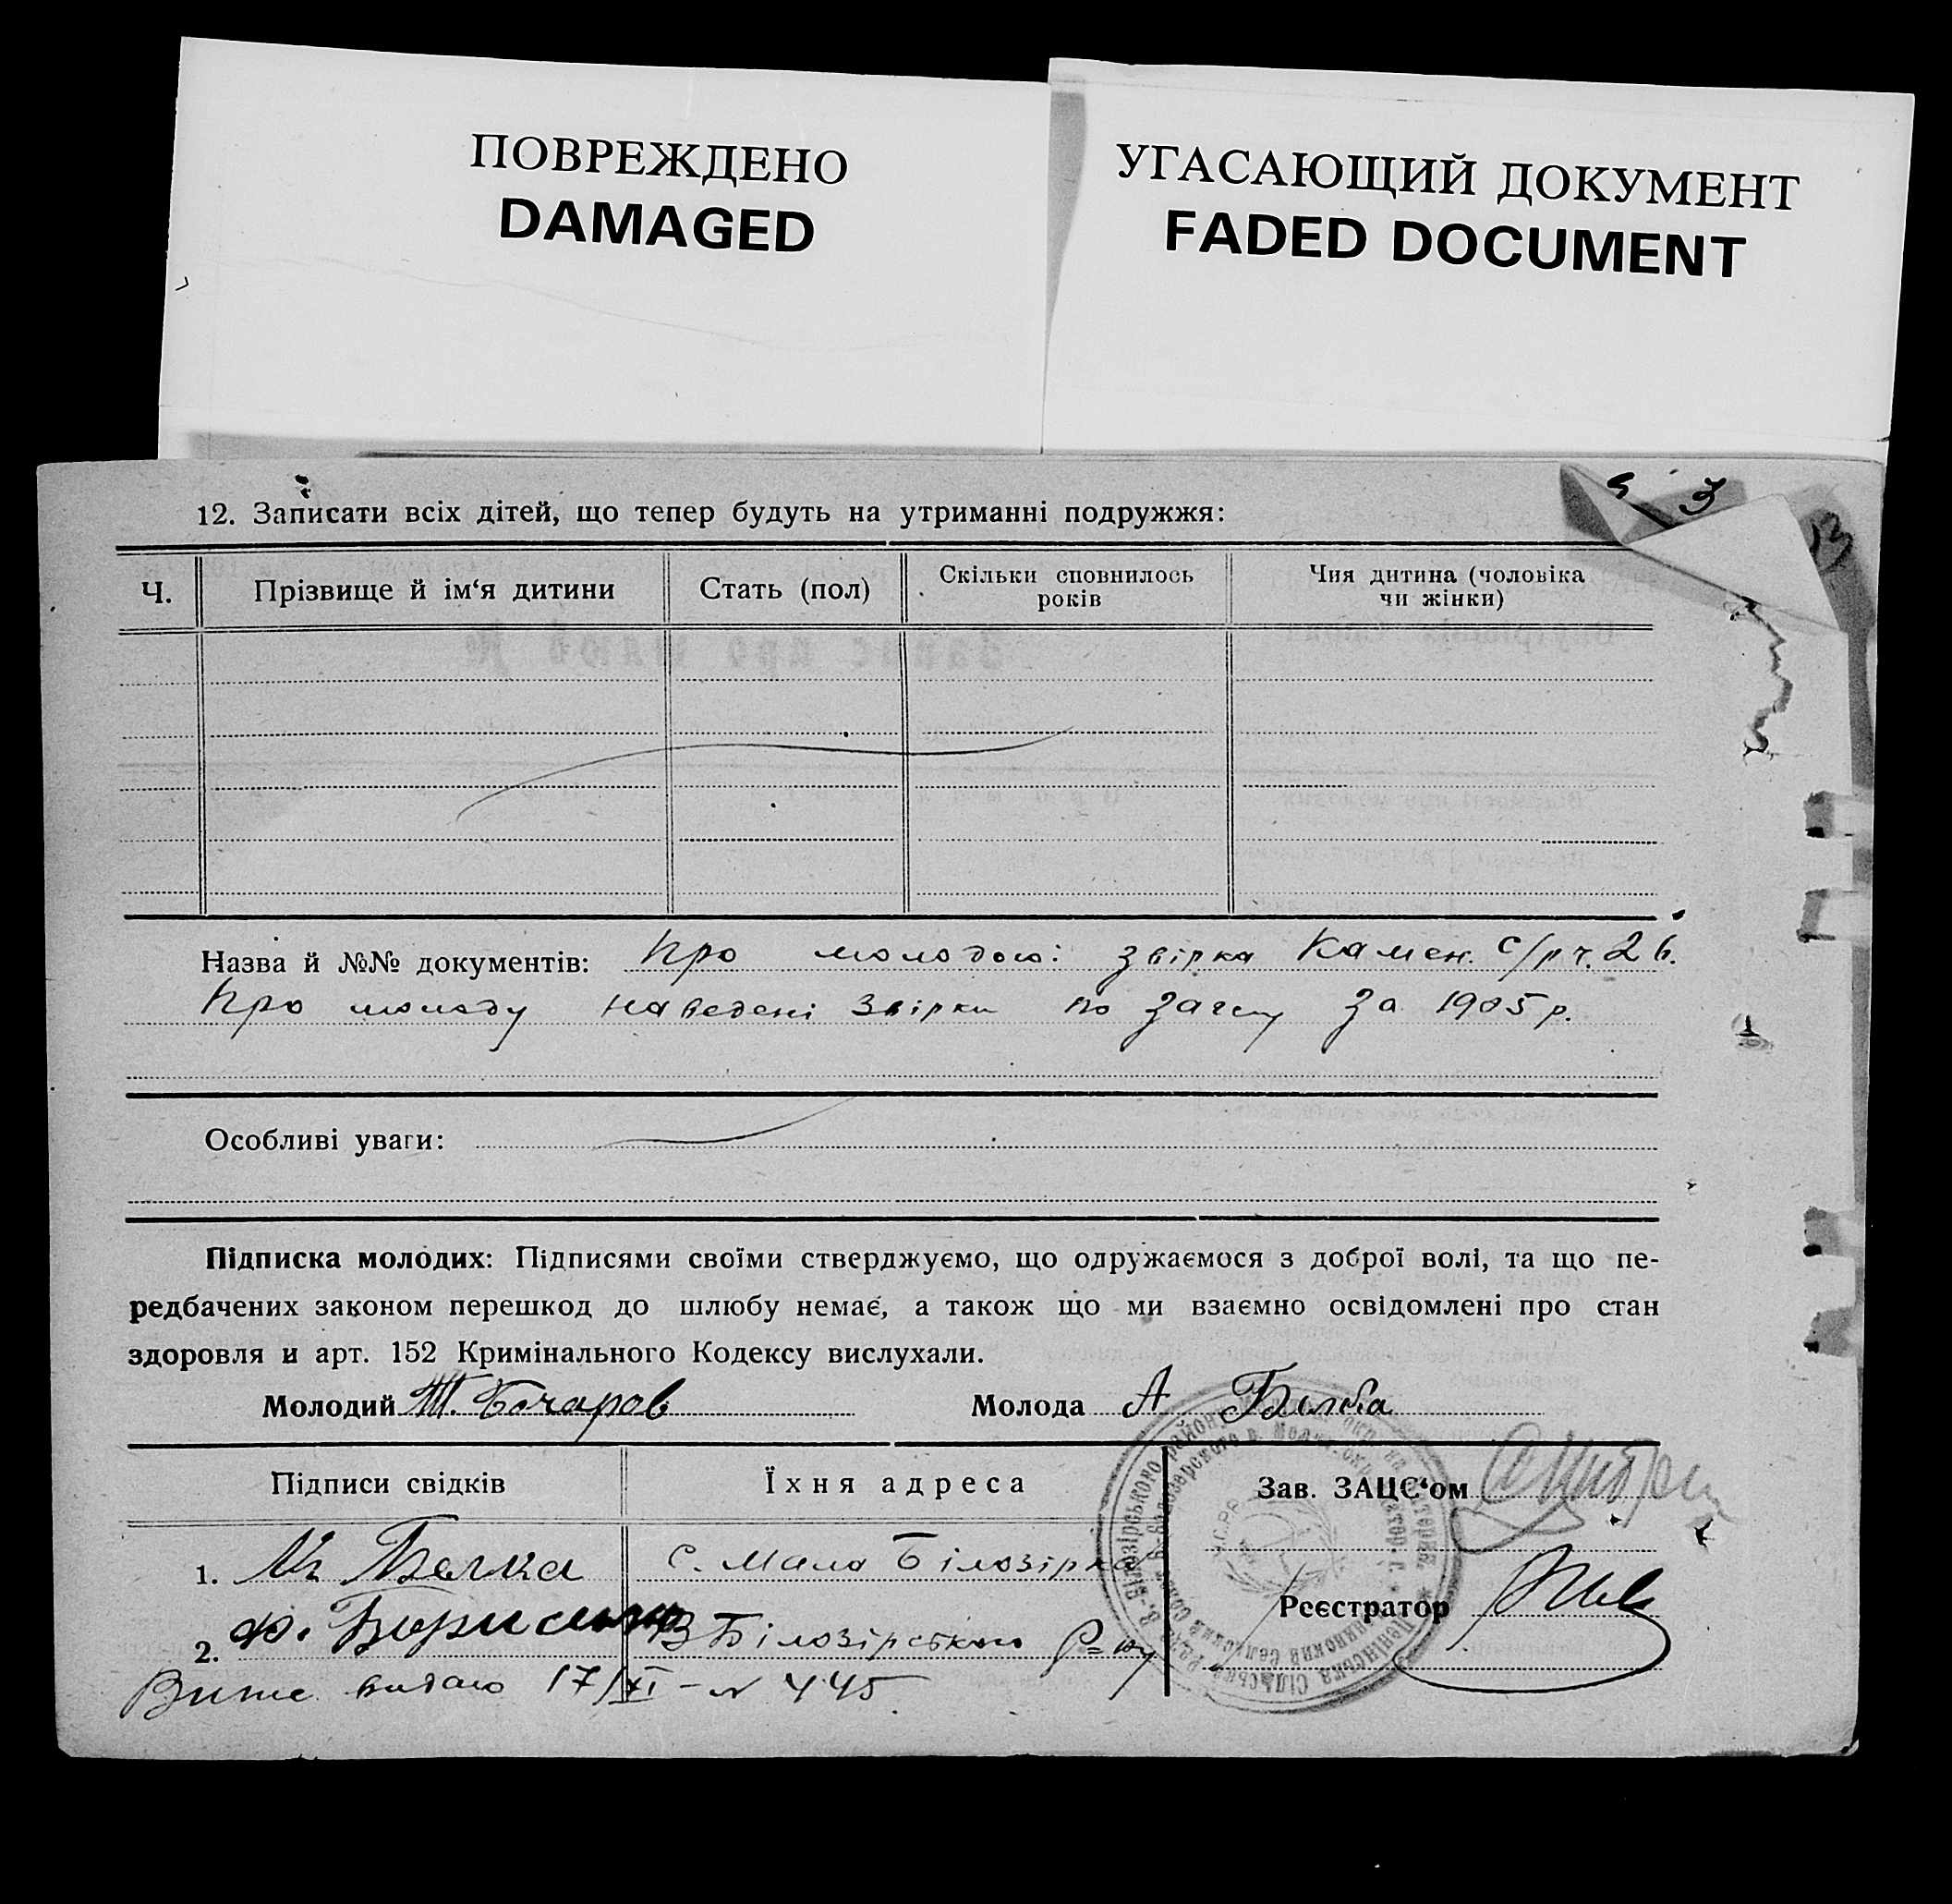 ПОВРЕЖДЕНО
DAMAGED
УГАСАЮЩИЙ ДОКУМЕНТ
FADED DOCUMENT
3
12. Записати всіх дітей, що тепер будуть на утриманні подружжя:
Ч.
Прізвище й ім‘я дитини
Стать (пол)
Скільки сповнилось
років
Чия дитина (чоловіка
чи жінки)
Назва й №№ документів: Про молодого: звірка Камен. с/р ч. 26.
Про молоду наведені звірки по загсу за 1905 р.
Особливі уваги:
Підписка молодих: Підписями своїми стверджуємо, що одружаємося з доброї волі, та що пе-
редбачених законом перешкод до шлюбу немає, а також що ми взаємно освідомлені про стан
здоровля и арт. 152 Кримінального Кодексу вислухали.
Молодий Т. Бочаров
Молода А
Підписи свідків
Їхня адреса
Зав. ЗАЦС‘ом
1. Белка
с. Мала Білозірка
2. Ф.
В Білозірського р=ну
Реєстратор
видано 17/XI – № 445